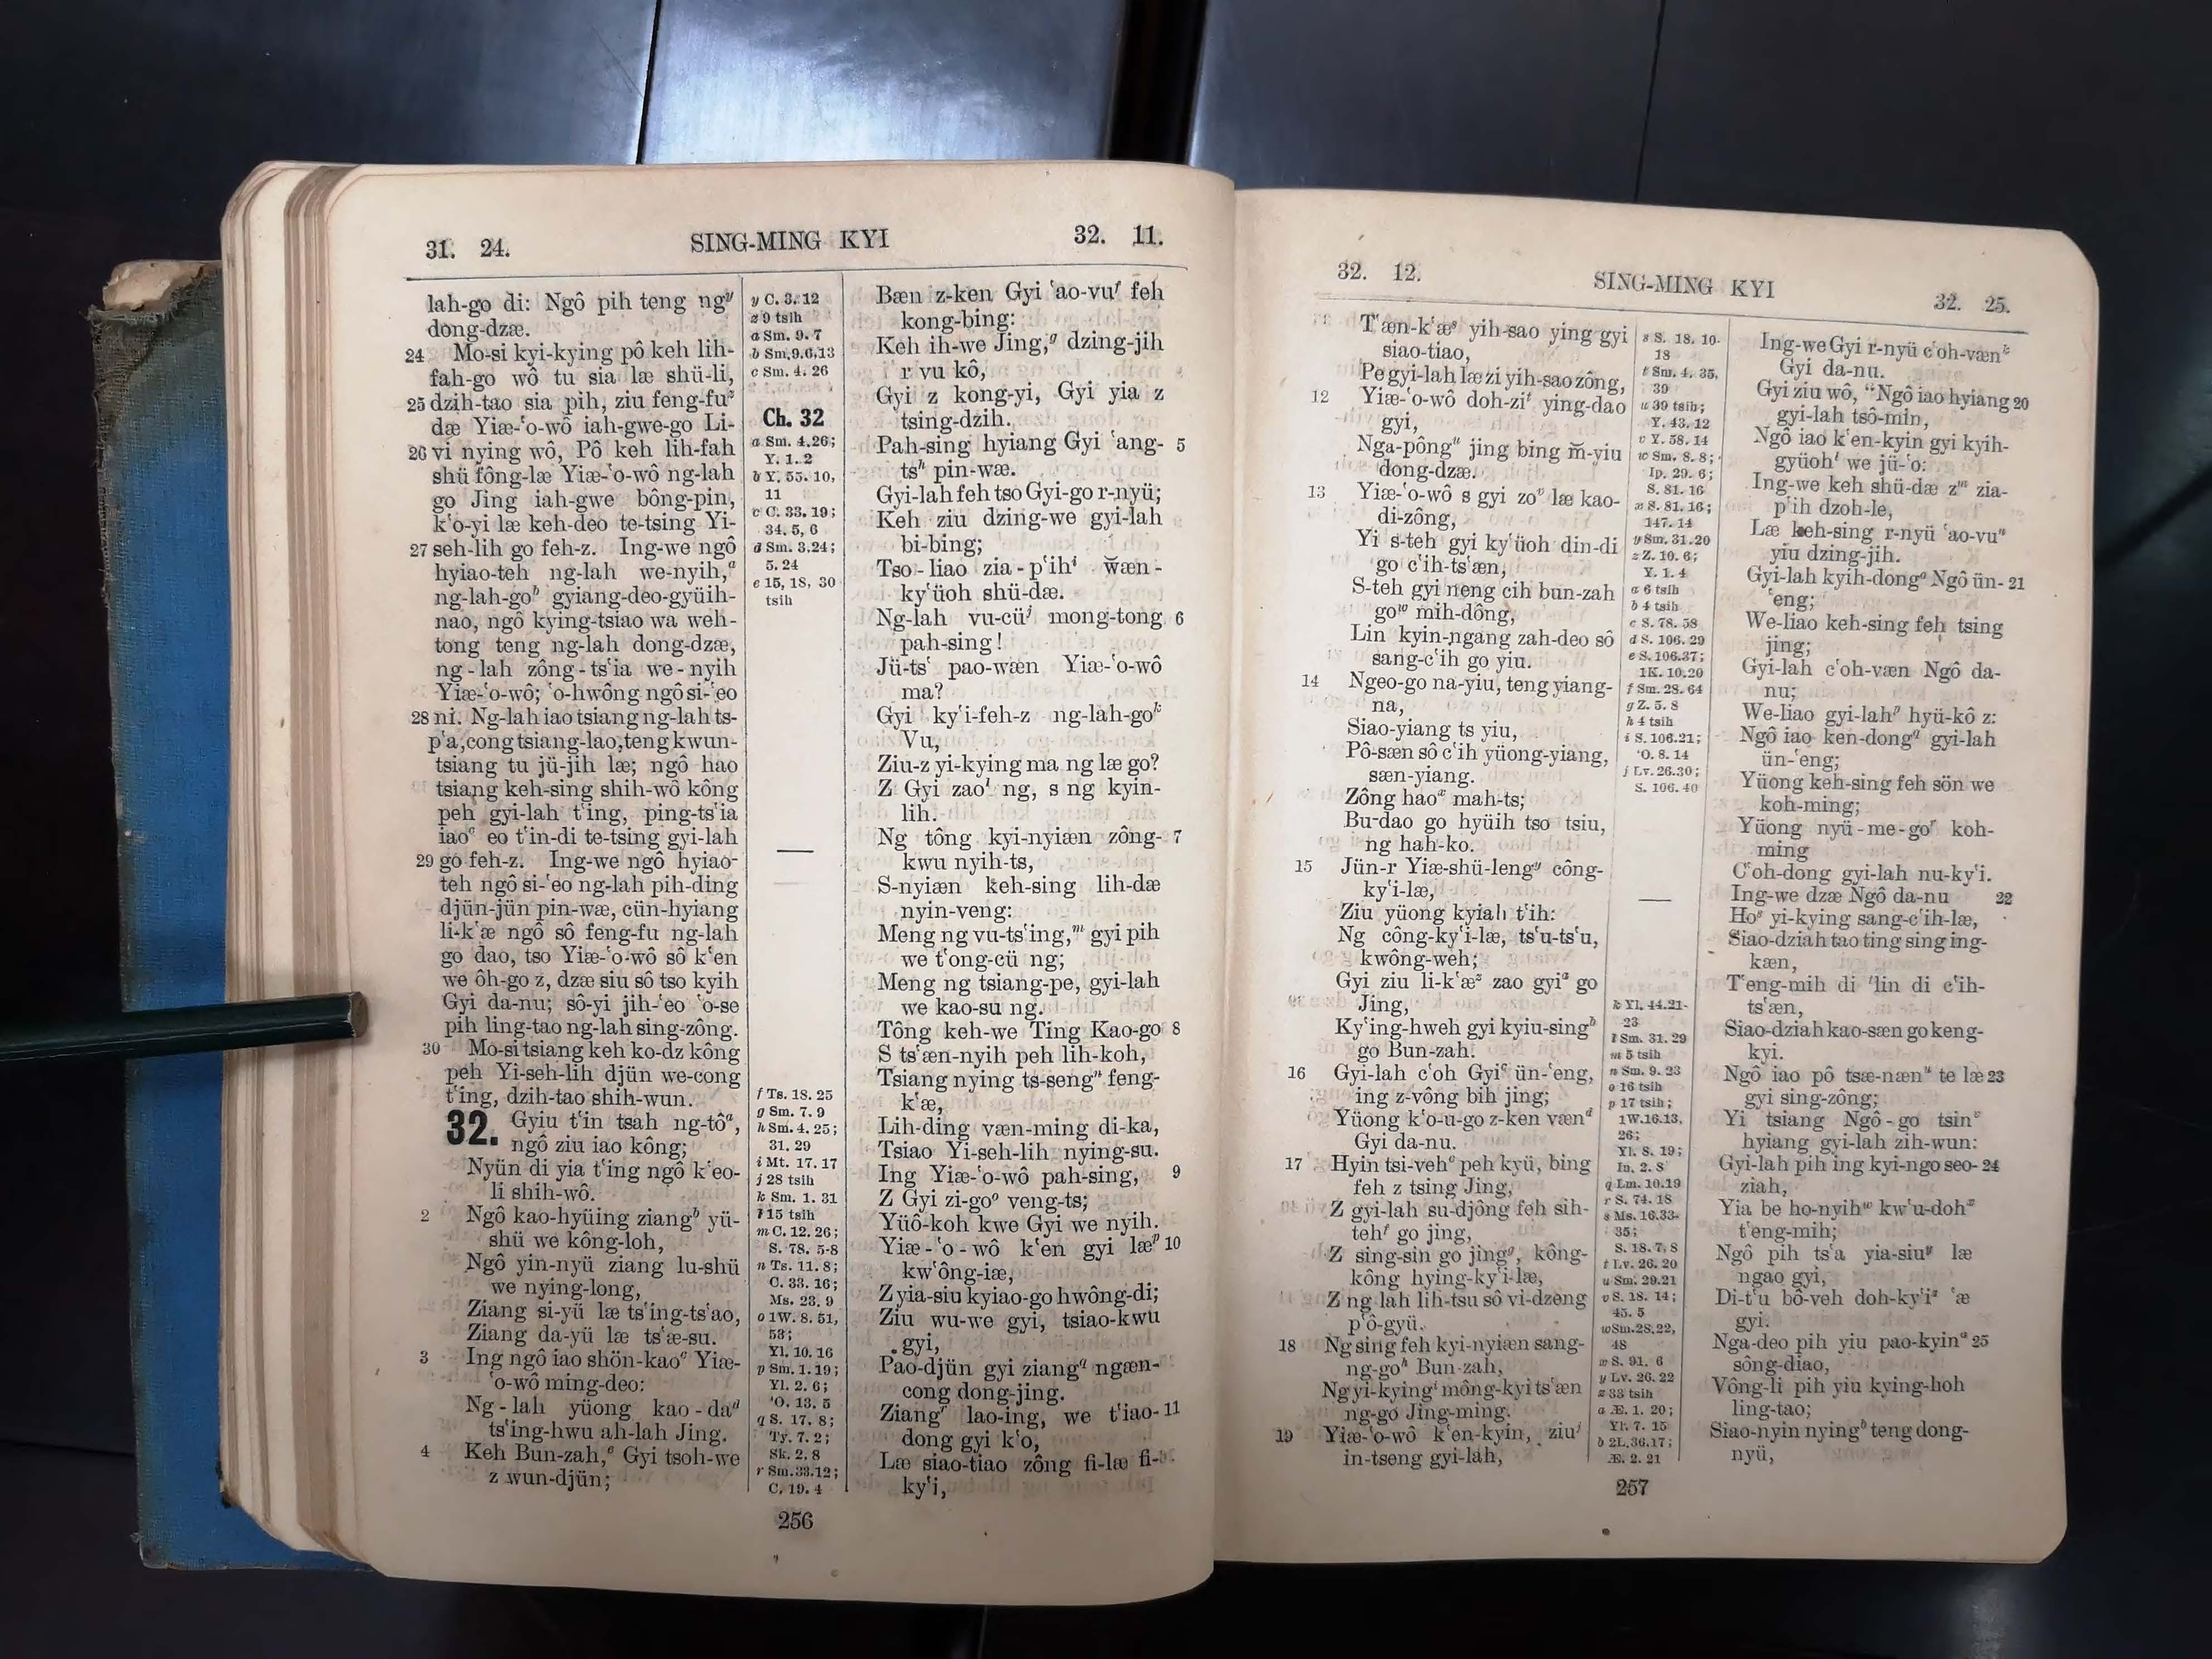 31. 24.
SING-MING KYI
32. 11.
lah-go di: Ngô pih teng ngʸ
dong-dzæ.
24 Mo-si kyi-kying pô keh lih-
fah-go wô tu sia læ shü-li,
25 dzih-tao sia pih, ziu feng-fuᶻ
dæ Yiæ-ʻo-wô iah-gwe-go Li-
26 vi nying wô, Pô keh lih-fah
shü fông-læ Yiæ-ʻo-wô ng-lah
go Jing iah-gwe bông-pin,
kʻo-yi læ keh-deo te-tsing Yi-
27 seh-lih go feh-z. Ing-we ngô
hyiao-teh ng-lah we-nyih,ᵃ
ng-lah-goᵇ gyiang-deo-gyüih-
nao, ngô kying-tsiao wa weh-
tong teng ng-lah dong-dzæ,
ng-lah zông-tsʻia we-nyih
Yiæ-ʻo-wô; ʻo-hwông ngô si-ʻeo
28 ni. Ng-lah iao tsiang ng-lah ts-
pʻa, cong tsiang-lao, teng kwun-
tsiang tu jü-jih læ; ngô hao
tsiang keh-sing shih-wô kông
peh gyi-lah tʻing, ping-tsʻia
iaoᶜ eo tʻin-di te-tsing gyi-lah
29 go feh-z. Ing-we ngô hyiao-
teh ngô si-ʻeo ng-lah pih-ding
djün-jün pin-wæ, cün-hyiang
li-kʻæ ngô sô feng-fu ng-lah
go dao, tso Yiæ-ʻo-wô sô kʻen
we ôh-go z, dzæ siu sô tso kyih
Gyi da-nu; sô-yi jih-ʻeo ʻo-se
pih ling-tao ng-lah sing-zông.
30 Mo-si tsiang keh ko-dz kông
peh Yi-seh-lih djün we-cong
tʻing, dzih-tao shih-wun.
32. Gyiu tʻin tsah ng-tôᵃ,
ngô ziu iao kông;
Nyün di yia tʻing ngô kʻeo-
li shih-wô.
2 Ngô kao-hyüing ziangᵇ yü-
shü we kông-loh,
Ngô yin-nyü ziang lu-shü
we nying-long,
Ziang si-yü læ tsʻing-tsʻao,
Ziang da-yü læ tsʻæ-su.
3 Ing ngô iao shön-kaoᶜ Yiæ-
ʻo-wô ming-deo:
Ng-lah yüong kao-daᵈ
tsʻing-hwu ah-lah Jing.
4 Keh Bun-zah,ᵉ Gyi tsoh-we
z wun-djün;
y C. 3. 12
z 9 tsih
a Sm. 9. 7
b Sm. 9. 6, 13
c Sm. 4. 26
Ch. 32
a Sm. 4. 26;
Y. 1. 2
b Y. 55. 10,
11
c C. 33. 19;
34. 5, 6
d Sm. 3. 24;
5. 24
e 15, 18, 30
tsih
f Ts. 18. 25
g Sm. 7. 9
h Sm. 4. 25;
31. 29
i Mt. 17. 17
j 28 tsih
k Sm. 1. 31
l 15 tsih
m C. 12. 26;
S. 78. 5-8
n Ts. 11. 8;
C. 33. 16;
Ms. 23. 9
o 1W. 8. 51,
53;
Yl. 10. 16
p Sm. 1. 19;
Yl. 2. 6;
ʻO. 13. 5
q S. 17. 8;
Ty. 7. 2;
Sk. 2. 8
r Sm. 33. 12;
C. 19. 4
Bæn z-ken Gyi ʻao-vuᶠ feh
kong-bing:
Keh ih-we Jing,ᵍ dzing-jih
r vu kô,
Gyi z kong-yi, Gyi yia z
tsing-dzih.
Pah-sing hyiang Gyi ʻang- 5
tsʰ pin-wæ.
Gyi-lah feh tso Gyi-go r-nyü;
Keh ziu dzing-we gyi-lah
bi-bing;
Tso-liao zia-pʻihⁱ w̌æn-
kyʻüoh shü-dæ.
Ng-lah vu-cüʲ mong-tong 6
pah-sing!
Jü-tsʻ pao-wæn Yiæ-ʻo-wô
ma?
Gyi kyʻi-feh-z ng-lah-goᵏ
Vu,
Ziu-z yi-kying ma ng læ go?
Z Gyi zaoˡ ng, s ng kyin-
lih.
Ng tông kyi-nyiæn zông- 7
kwu nyih-ts,
S-nyiæn keh-sing lih-dæ
nyin-veng:
Meng ng vu-tsʻing,ᵐ gyi pih
we tʻong-cü ng;
Meng ng tsiang-pe, gyi-lah
we kao-su ng.
Tông keh-we Ting Kao-go 8
S tsʻæn-nyih peh lih-koh,
Tsiang nying ts-sengⁿ feng-
kʻæ,
Lih-ding væn-ming di-ka,
Tsiao Yi-seh-lih nying-su.
Ing Yiæ-ʻo-wô pah-sing, 9
Z Gyi zi-goᵒ veng-ts;
Yüô-koh kwe Gyi we nyih.
Yiæ-ʻo-wô kʻen gyi læᵖ 10
kwʻông-iæ,
Z yia-siu kyiao-go hwông-di;
Ziu wu-we gyi, tsiao-kwu
gyi,
Pao-djün gyi ziang𐞥 ngæn-
cong dong-jing.
Ziangʳ lao-ing, we tʻiao- 11
dong gyi kʻo,
Læ siao-tiao zông fi-læ fi-
kyʻi,
256
32. 12.
SING-MING KYI
32. 25.
Tʻæn-kʻæˢ yih-sao ying gyi
siao-tiao,
Pe gyi-lah læ zi yih-sao zông,
12 Yiæ-ʻo-wô doh-ziᵗ ying-dao
gyi,
Nga-pôngᵘ jing bing m̌-yiu
dong-dzæ.
13 Yiæ-ʻo-wô s gyi zoᵛ læ kao-
di-zông,
Yi s-teh gyi kyʻüoh din-di
go cʻih-tsʻæn,
S-teh gyi neng cih bun-zah
goʷ mih-dông,
Lin kyin-ngang zah-deo sô
sang-cʻih go yiu.
14 Ngeo-go na-yiu, teng yiang-
na,
Siao-yiang ts yiu,
Pô-sæn sô cʻih yüong-yiang,
sæn-yiang.
Zông haoˣ mah-ts;
Bu-dao go hyüih tso tsiu,
ng hah-ko.
15 Jün-r Yiæ-shü-lengʸ công-
kyʻi-læ,
Ziu yüong kyiah tʻih:
Ng công-kyʻi-læ, tsʻu-tsʻu,
kwông-weh;
Gyi ziu li-kʻæᶻ zao gyiᵃ go
Jing,
Kyʻing-hweh gyi kyiu-singᵇ
go Bun-zah.
16 Gyi-lah cʻoh Gyiᶜ ün-ʻeng,
ing z-vông bih jing;
Yüong kʻo-u-go z-ken vænᵈ
Gyi da-nu.
17 Hyin tsi-vehᵉ peh kyü, bing
feh z tsing Jing,
Z gyi-lah su-djông feh sih-
tehᶠ go jing,
Z sing-sin go jingᵍ, kông-
kông hying-kyʻi-læ,
Z ng lah lih-tsu sô vi-dzeng
pʻô-gyü.
18 Ng sing feh kyi-nyiæn sang-
ng-goʰ Bun-zah,
Ng yi-kyingⁱ mông-kyi tsʻæn
ng-go Jing-ming.
19 Yiæ-ʻo-wô kʻen-kyin, ziuʲ
in-tseng gyi-lah,
s S. 18. 10-
18
t Sm. 4. 35,
39
u 39 tsih;
Y. 43. 12
v Y. 58. 14
w Sm. 8. 8;
Ip. 29. 6;
S. 81. 16
x S. 81. 16;
147. 14
y Sm. 31. 20
z Z. 10. 6;
Y. 1. 4
a 6 tsih
b 4 tsih
c S. 78. 58
d S. 106. 29
e S. 106. 37;
1K. 10. 20
f Sm. 28. 64
g Z. 5. 8
h 4 tsih
i S. 106. 21;
ʻO. 8. 14
j Lv. 26. 30;
S. 106. 40
k Yl. 44. 21-
23
l Sm. 31. 29
m 5 tsih
n Sm. 9. 23
o 16 tsih
p 17 tsih;
1W. 16. 13,
26;
Yl. 8. 19;
In. 2. 8
q Lm. 10. 19
r S. 74. 18
s Ms. 16. 33-
35;
S. 18. 7, 8
t Lv. 26. 20
u Sm. 29. 21
v S. 18. 14;
45. 5
w Sm. 28. 22,
48
x S. 91. 6
y Lv. 26. 22
z 33 tsih
a Æ. 1. 20;
Yl. 7. 15
b 2L. 36. 17;
Æ. 2. 21
Ing-we Gyi r-nyü cʻoh-vænᵏ
Gyi da-nu.
Gyi ziu wô, “Ngô iao hyiang 20
gyi-lah tsô-min,
Ngô iao kʻen-kyin gyi kyih-
gyüohˡ we jü-ʻo:
Ing-we keh shü-dæ zᵐ zia-
pʻih dzoh-le,
Læ keh-sing r-nyü ʻao-vuⁿ
yiu dzing-jih.
Gyi-lah kyih-dongᵒ Ngô ün- 21
ʻeng;
We-liao keh-sing feh tsing
jing;
Gyi-lah cʻoh-væn Ngô da-
nu;
We-liao gyi-lahᵖ hyü-kô z:
Ngô iao ken-dong𐞥 gyi-lah
ün-ʻeng;
Yüong keh-sing feh sön we
koh-ming;
Yüong nyü-me-goʳ koh-
ming
Cʻoh-dong gyi-lah nu-kyʻi.
Ing-we dzæ Ngô da-nu 22
Hoˢ yi-kying sang-cʻih-læ,
Siao-dziah tao ting sing ing-
kæn,
Tʻeng-mih di ʻlin di cʻih-
tsʻæn,
Siao-dziah kao-sæn go keng-
kyi.
Ngô iao pô tsæ-nænᵘ te læ 23
gyi sing-zông;
Yi tsiang Ngô-go tsinᵛ
hyiang gyi-lah zih-wun:
Gyi-lah pih ing kyi-ngo seo- 24
ziah,
Yia be ho-nyihʷ kwʻu-dohˣ
tʻeng-mih;
Ngô pih tsʻa yia-siuʸ læ
ngao gyi,
Di-tʻu bô-veh doh-kyʻiᶻ ʻæ
gyi.
Nga-deo pih yiu pao-kyinᵃ 25
sông-diao,
Vông-li pih yiu kying-hoh
ling-tao;
Siao-nyin nyingᵇ teng dong-
nyü,
257